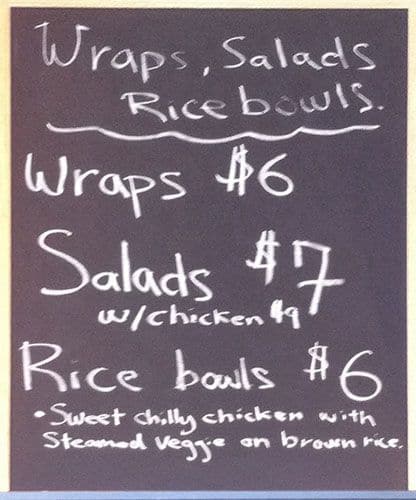 Wraps, Salads
Rice bowls.
Wraps $6
Salads $7
w/chicken $9
Rice bowls $6
• Sweet chilly chicken with
Steamed Veggie on brown rice.